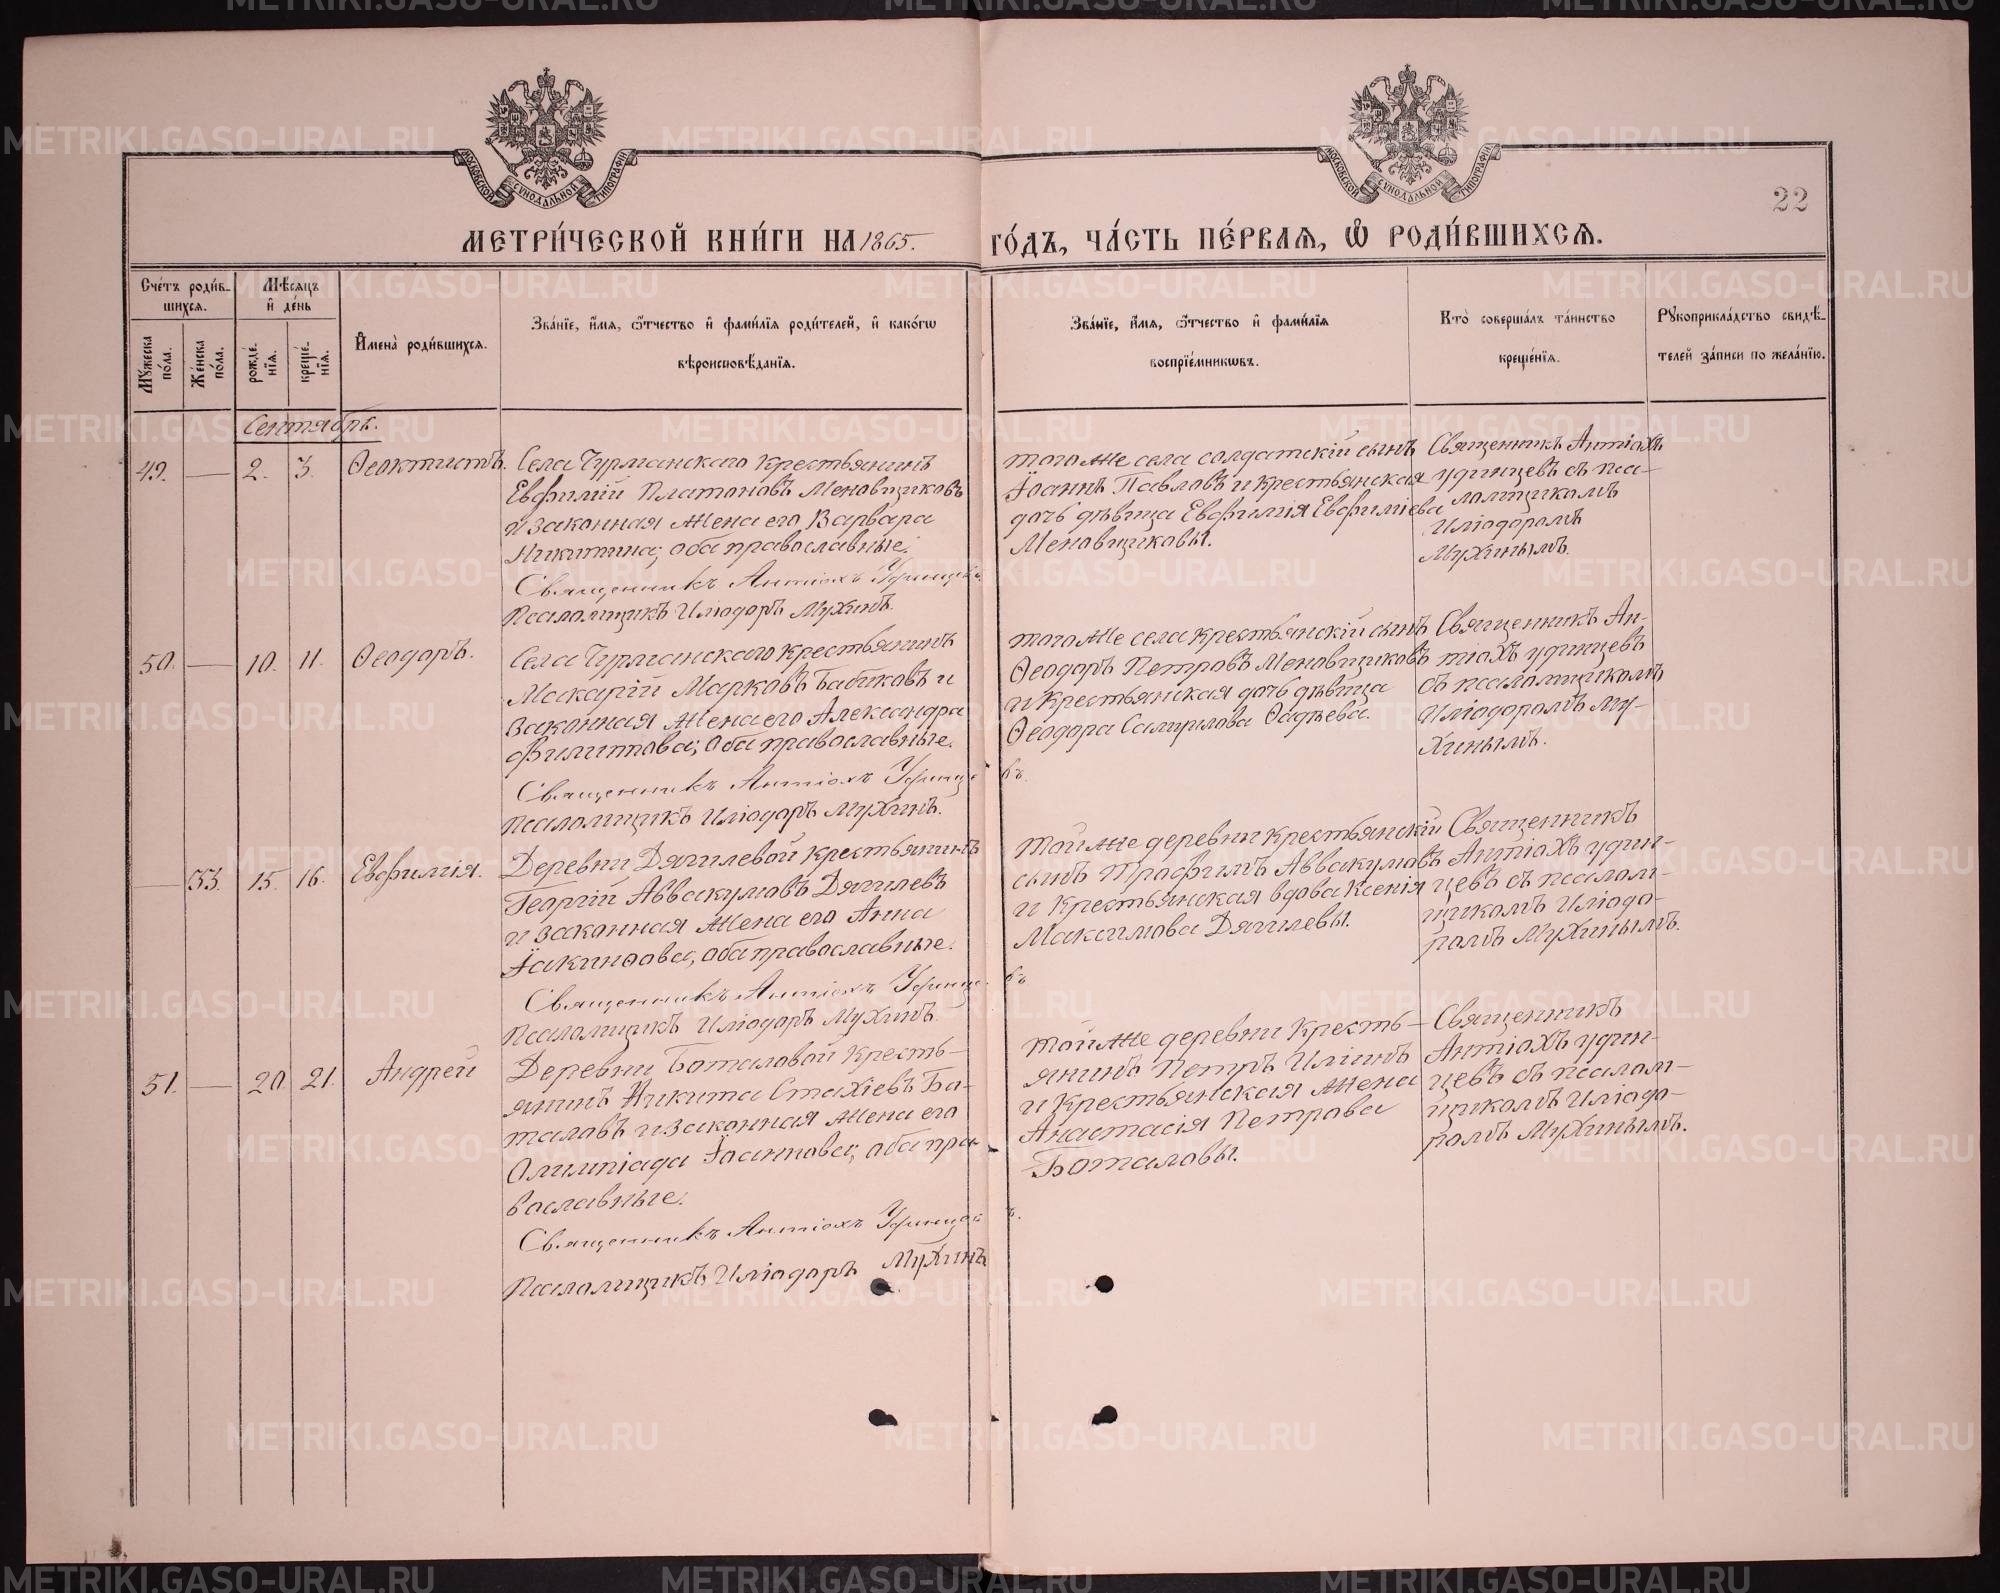 МОСКОВСКОЙ СѴНОДАЛЬНОЙ ТИПОГРАФИИ
МОСКОВСКОЙ СѴНОДАЛЬНОЙ ТИПОГРАФИИ
22
МЕТРИ́ЧЕСКОЙ КНИ́ГИ НА 1865.
ГО́ДЪ, ЧА́СТЬ ПЕ́РВАЯ, Ѡ РОДИ́ВШИХСЯ.
Сче́тъ роди́в-
шихся.
Мѣ́сяцъ
и де́нь
Му́жеска по́ла.
Же́нска по́ла.
рожде́-
нїя.
креще́-
нїя.
И҆мена̀ роди́вшихся.
Зва́нїе, и҆́мя, ѻ҆́тчество и҆ фами́лїя роди́телей, и҆ како́гѡ
вѣроисповѣ́данїя.
Зва́нїе, и҆́мя, ѻ҆́тчество и҆ фами́лїя
воспрїе́мникѡвъ.
Кто̀ соверша́лъ та́инство
креще́нїя.
Рꙋкоприкла́дство свидѣ́-
телей за́писи по жела́нїю.
Сентябрь.
49. — 2. 3. Ѳеоктистъ.
Села Чурманскаго крестьянинъ
Евфимій Платоновъ Меновщиковъ
и законная жена его Варвара
Никитина; оба православные.
Священникъ Антіохъ Удинцевъ
Псаломщикъ Иліодоръ Мухинъ.
тогоже села солдатскій сынъ
Іоаннъ Павловъ и крестьянская
дочь дѣвица Евфимія Евфиміева
Меновщиковы.
Священникъ Антіохъ
Удинцевъ съ пса-
ломщикомъ
Иліодоромъ
Мухинымъ.
50. — 10. 11. Ѳеодоръ.
Села Чурманскаго крестьянинъ
Макарій Марковъ Бабиковъ и
законная жена его Александра
Филиппова; оба православные.
Священникъ Антіохъ Удинцевъ.
Псаломщикъ Иліодоръ Мухинъ.
тогоже села крестьянскій сынъ
Ѳеодоръ Петровъ Меновщиковъ
и крестьянская дочь дѣвица
Ѳеодора Самуилова Ѳадѣева.
Священникъ Ан-
тіохъ Удинцевъ
съ псаломщикомъ
Иліодоромъ Му-
хинымъ.
— 33. 15. 16. Евфимія.
Деревни Дягилевой крестьянинъ
Георгій Аввакумовъ Дягилевъ
и законная жена его Анна
Іакинѳова; оба православные.
Священникъ Антіохъ Удинцевъ
Псаломщикъ Иліодоръ Мухинъ.
тойже деревни крестьянскій
сынъ Трофимъ Аввакумовъ
и крестьянская вдова Ксенія
Максимова Дягилевы.
Священникъ
Антіохъ Удин-
цевъ съ псалом-
щикомъ Иліодо-
ромъ Мухинымъ.
51. — 20. 21. Андрей
Деревни Боталовой кресть-
янинъ Никита Стахіевъ Бо-
таловъ и законная жена его
Олимпіада Іоаннова; оба пра-
вославные.
Священникъ Антіохъ Удинцевъ.
Псаломщикъ Иліодоръ Мухинъ
тойже деревни кресть-
янинъ Петръ Иліинъ
и крестьянская жена
Анастасія Петрова
Боталовы.
Священникъ
Антіохъ Удин-
цевъ съ псалом-
щикомъ Иліодо-
ромъ Мухинымъ.
METRIKI.GASO-URAL.RU